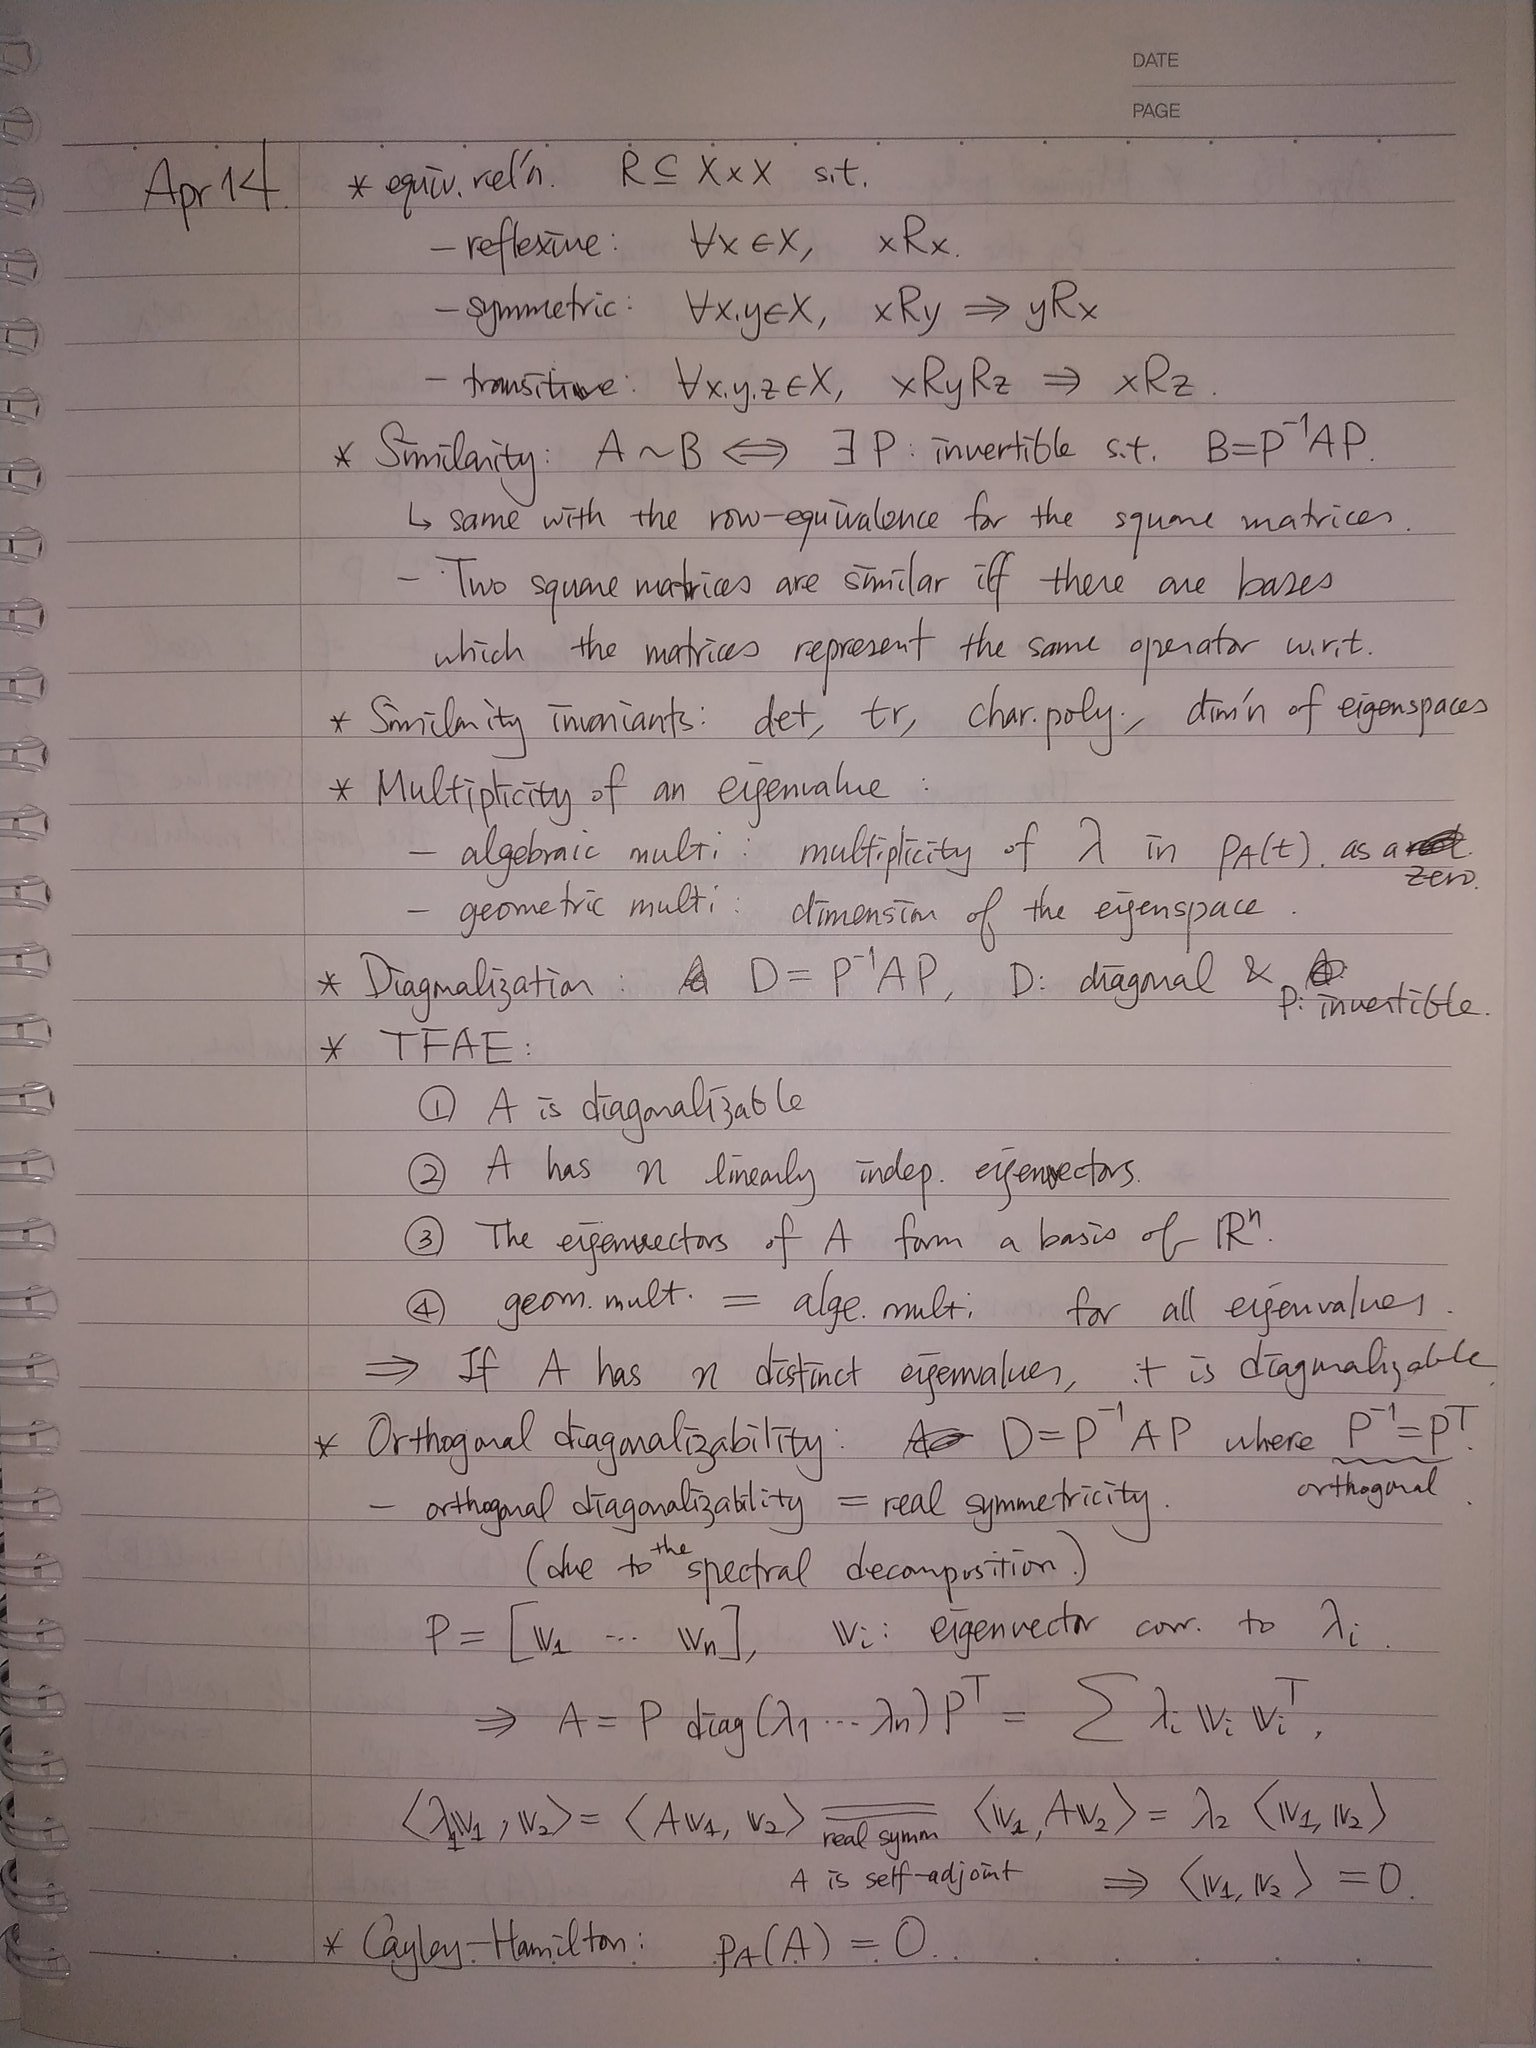 DATE
PAGE
Apr 14.
* equiv. rel'n. R ⊆ X×X s.t.
– reflexive: ∀x∈X, xRx.
– symmetric: ∀x,y∈X, xRy ⇒ yRx
– transitive: ∀x,y,z∈X, xRyRz ⇒ xRz.
* Similarity: A~B ⇔ ∃P: invertible s.t. B=P⁻¹AP.
↳ same with the row-equivalence for the square matrices.
– Two square matrices are similar iff there are bases
which the matrices represent the same operator w.r.t.
* Similarity invariants: det, tr, char.poly., dim'n of eigenspaces
* Multiplicity of an eigenvalue :
– algebraic multi : multiplicity of λ in p_A(t). as a zero.
– geometric multi : dimension of the eigenspace.
* Diagonalization : D = P⁻¹AP, D: diagonal & P: invertible.
* TFAE:
① A is diagonalizable
② A has n linearly indep. eigenvectors.
③ The eigenvectors of A form a basis of ℝⁿ.
④ geom. mult. = alge. multi for all eigenvalues.
⇒ If A has n distinct eigenvalues, it is diagonalizable.
* Orthogonal diagonalizability: D=P⁻¹AP where P⁻¹=Pᵀ.
orthogonal.
– orthogonal diagonalizability = real symmetricity.
(due to the spectral decomposition.)
P = [v₁ ⋯ vₙ], vᵢ: eigenvector corr. to λᵢ.
⇒ A = P diag(λ₁⋯λₙ)Pᵀ = ∑ λᵢ vᵢ vᵢᵀ,
⟨λ₁v₁, v₂⟩ = ⟨Av₁, v₂⟩ = ⟨v₁, Av₂⟩ = λ₂ ⟨v₁, v₂⟩
real symm
A is self-adjoint ⇒ ⟨v₁, v₂⟩ = 0.
* Cayley-Hamilton: p_A(A) = O.